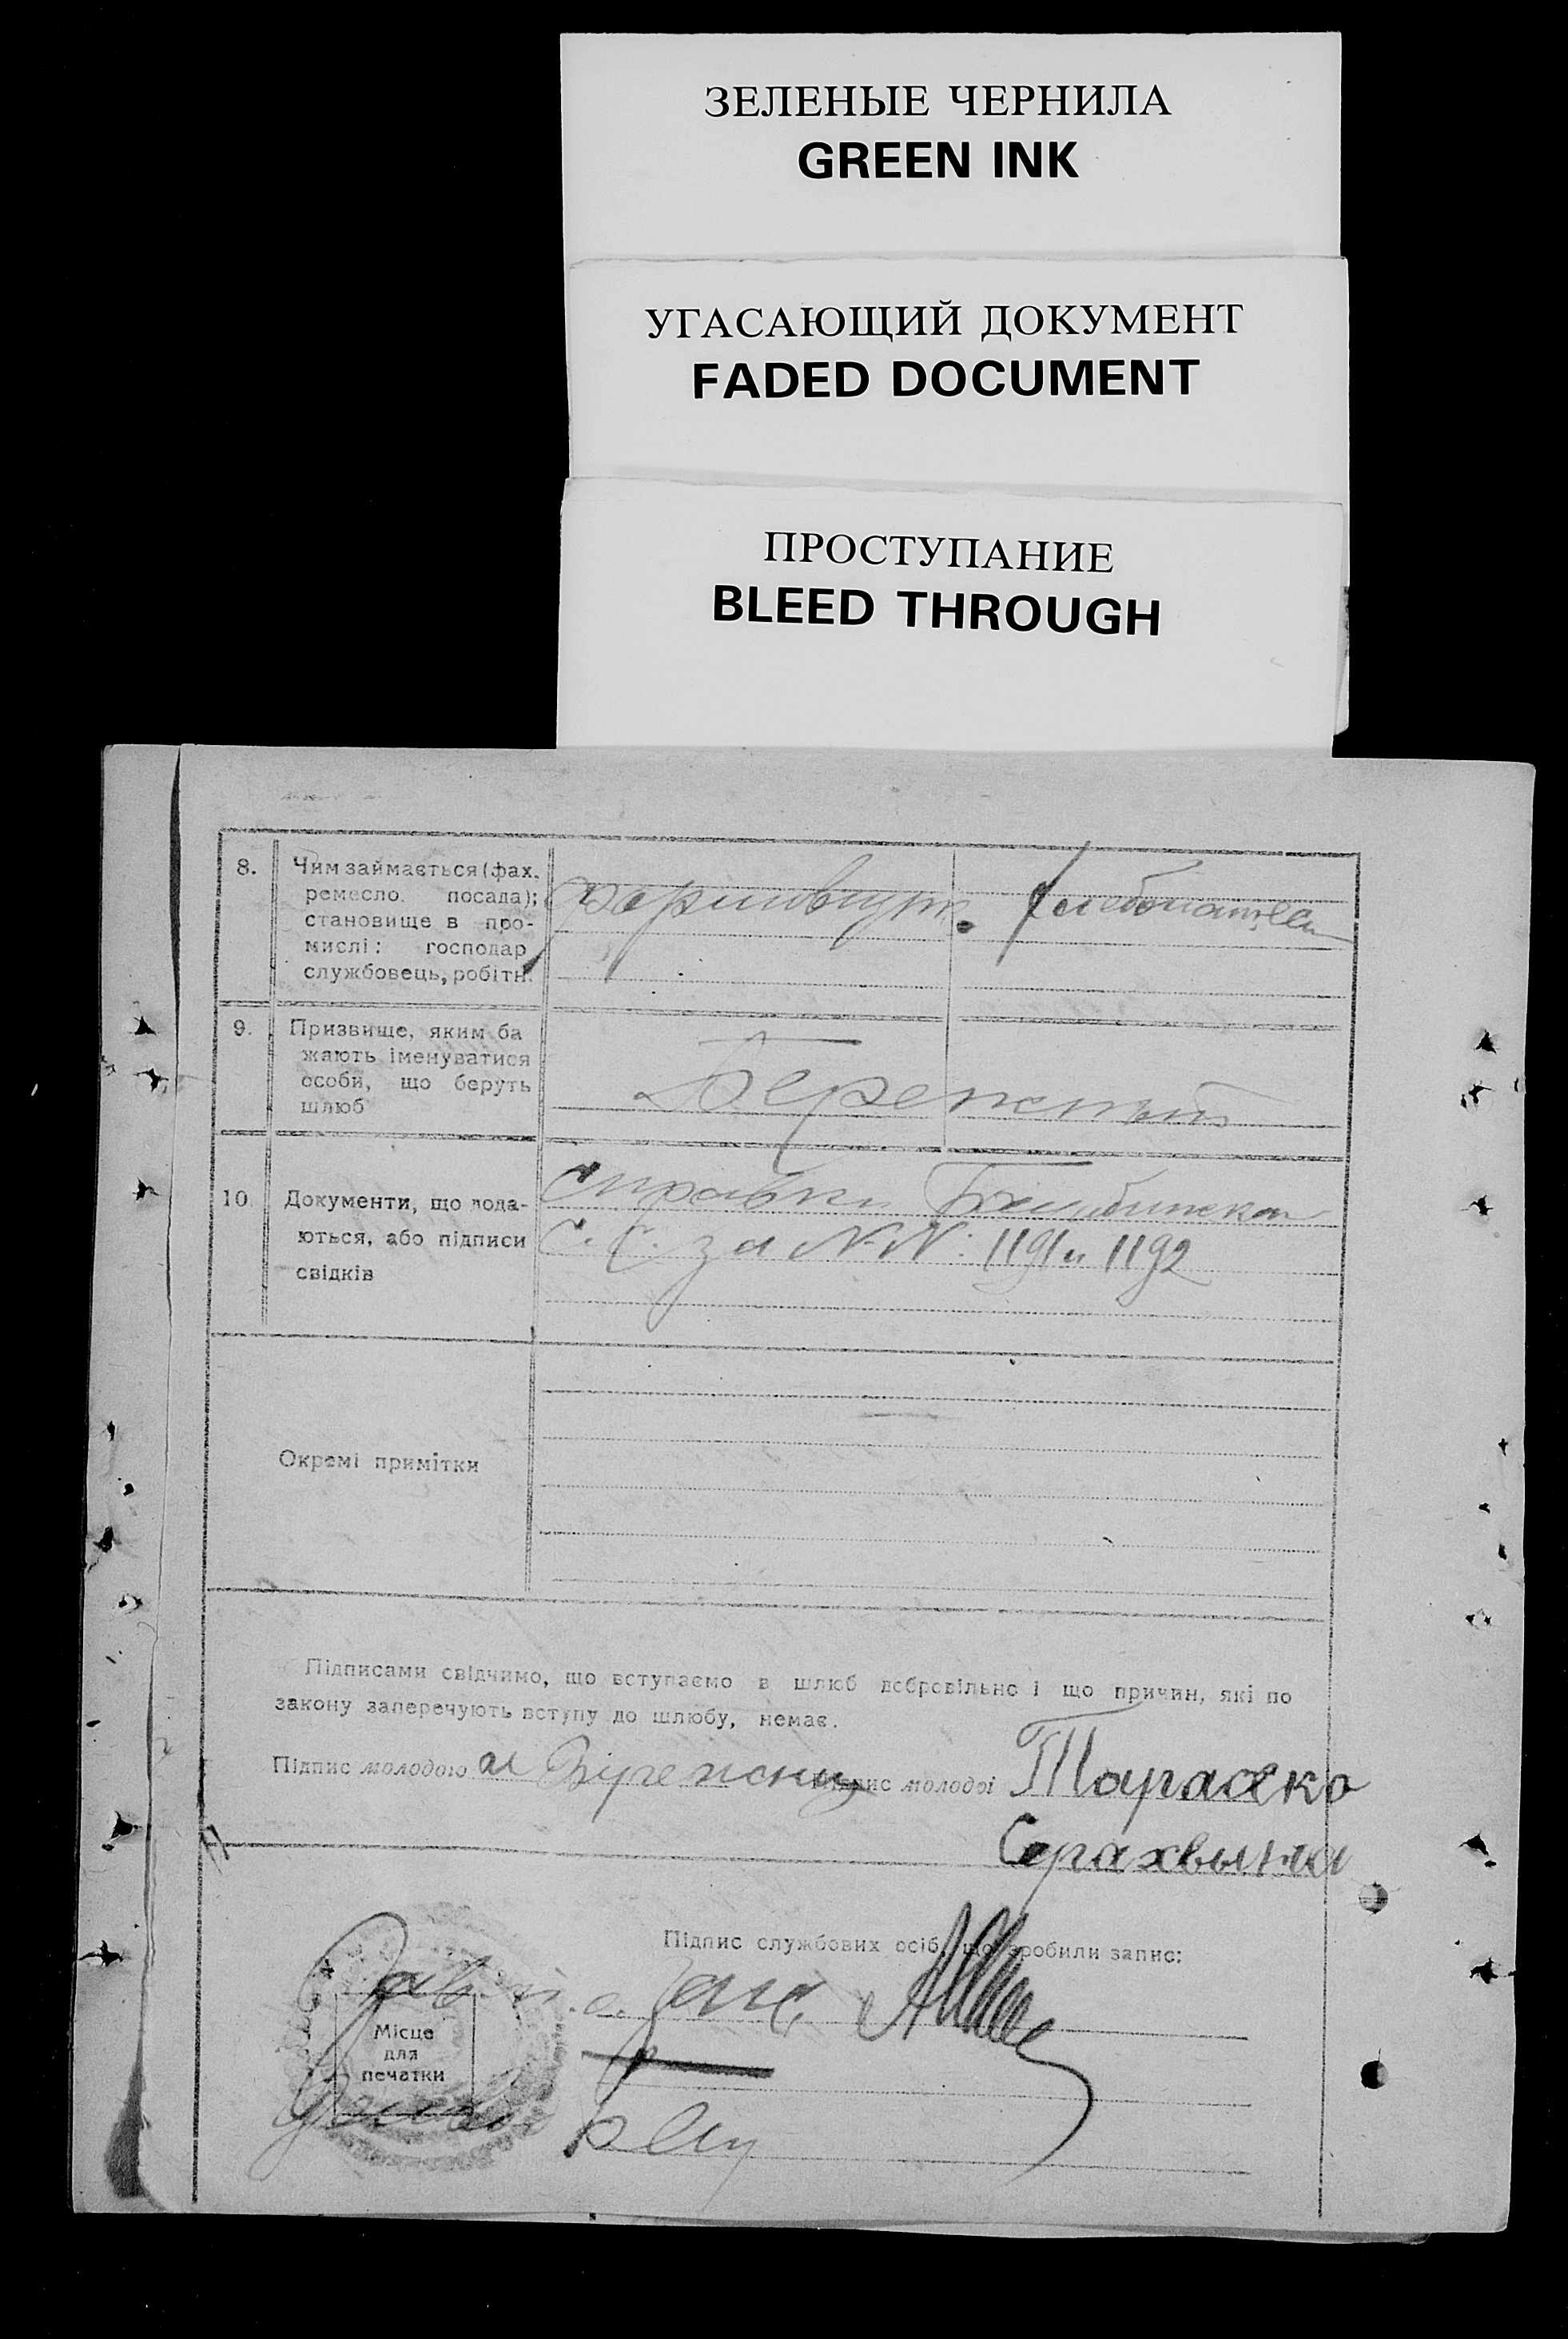 ЗЕЛЕНЫЕ ЧЕРНИЛА
GREEN INK
УГАСАЮЩИЙ ДОКУМЕНТ
FADED DOCUMENT
ПРОСТУПАНИЕ
BLEED THROUGH
8.
Чим займається (фах.
ремесло. посада);
становище в про-
мислі: господар
службовець, робітн.
9.
Призвище, яким ба
жають іменуватися
особи, що беруть
шлюб
10.
Документи, що пода-
ються, або підписи
свідків
справки
С.С. за N-N: 1191 и 1192
Окремі примітки
Підписами свідчимо, що вступаємо в шлюб добровільно і що причин, які по
закону заперечують вступу до шлюбу, немає.
Підпис молодого
Підпис молодої Тараseко
Серахвыма
Підпис службових осіб, що зробили запис:
Місце
для
печатки